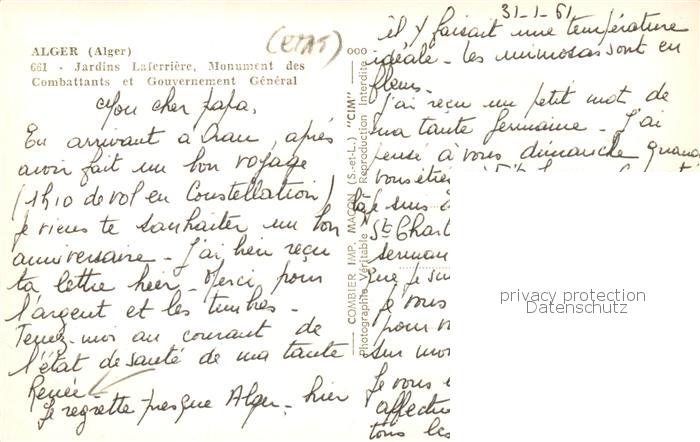 ALGER (Alger)
661 - Jardins Laferrière, Monument des
Combattants et Gouvernement Général
Mon cher papa,
En arrivant à Oran, après
avoir fait un bon voyage
(1h10 de vol en Constellation)
je viens te souhaiter un bon
anniversaire - J'ai bien reçu
ta lettre hier - Merci pour
l'argent et les timbres -
Tenez-moi au courant de
l'état de santé de ma tante
Renée -
Je regrette presque Alger - hier
ooo
COMBIER IMP. MACON (S.-et-L.) "CIM"
Photographie Véritable - Reproduction Interdite
31-1-61
il y faisait une température
idéale - les mimosas sont en
fleurs.
J'ai reçu un petit mot de
ma tante Germaine - J'ai
pensé à vous dimanche quand
vous étiez
là je suis
St Charl
Germain
que je sui
à vous
pour vo
sur mon
Je vous
affectu
tous les
privacy protection
Datenschutz